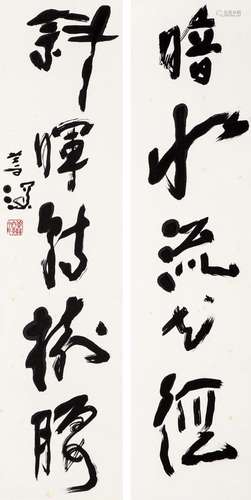 暗水流花徑
斜暉轉樹腰